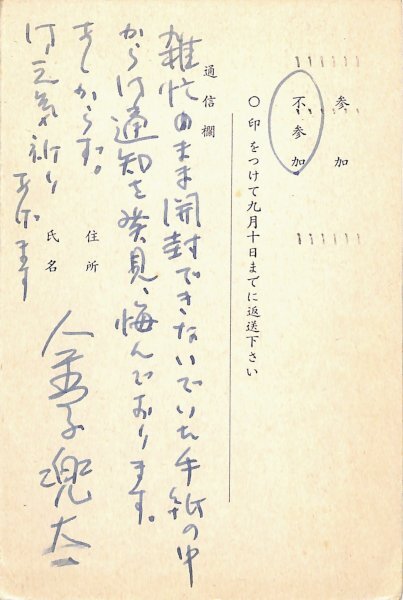 参加
不参加
○印をつけて九月十日までに返送下さい
通信欄
雑忙のまま開封できないでいた手紙の中
から御通知を発見、悔んでおります。
あしからず。
御元気祈り
あげます
住所
氏名
金子兜太